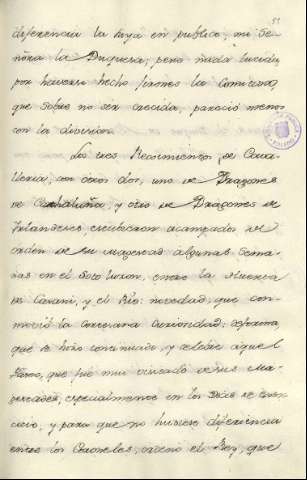 diferencia la suya en publico, mi Se-
ñora la Duquesa; pero nada lucida,
por haverse hecho la Comitiva,
que sobre no ser crecida, pareció menos
con la division.
Los tres Regimientos de Cava-
lleria, con otros dos, uno de Dragones
de y otro de Dragones de
Irlandeses estubieron acampados de
orden de su magestad algunas Sema-
nas en el Soto entre la Huerta
de y el Rio: novedad, que con-
movió la cortesana curiosidad: deforma,
que se hizo continuado, y celebre aquel
Paseo, que fué mui visitado de sus Ma-
gestades, especialmente en los Dias de Exer-
cicio, y para que no hubiese diferencia
entre los Coroneles, ordenó el Rey, que